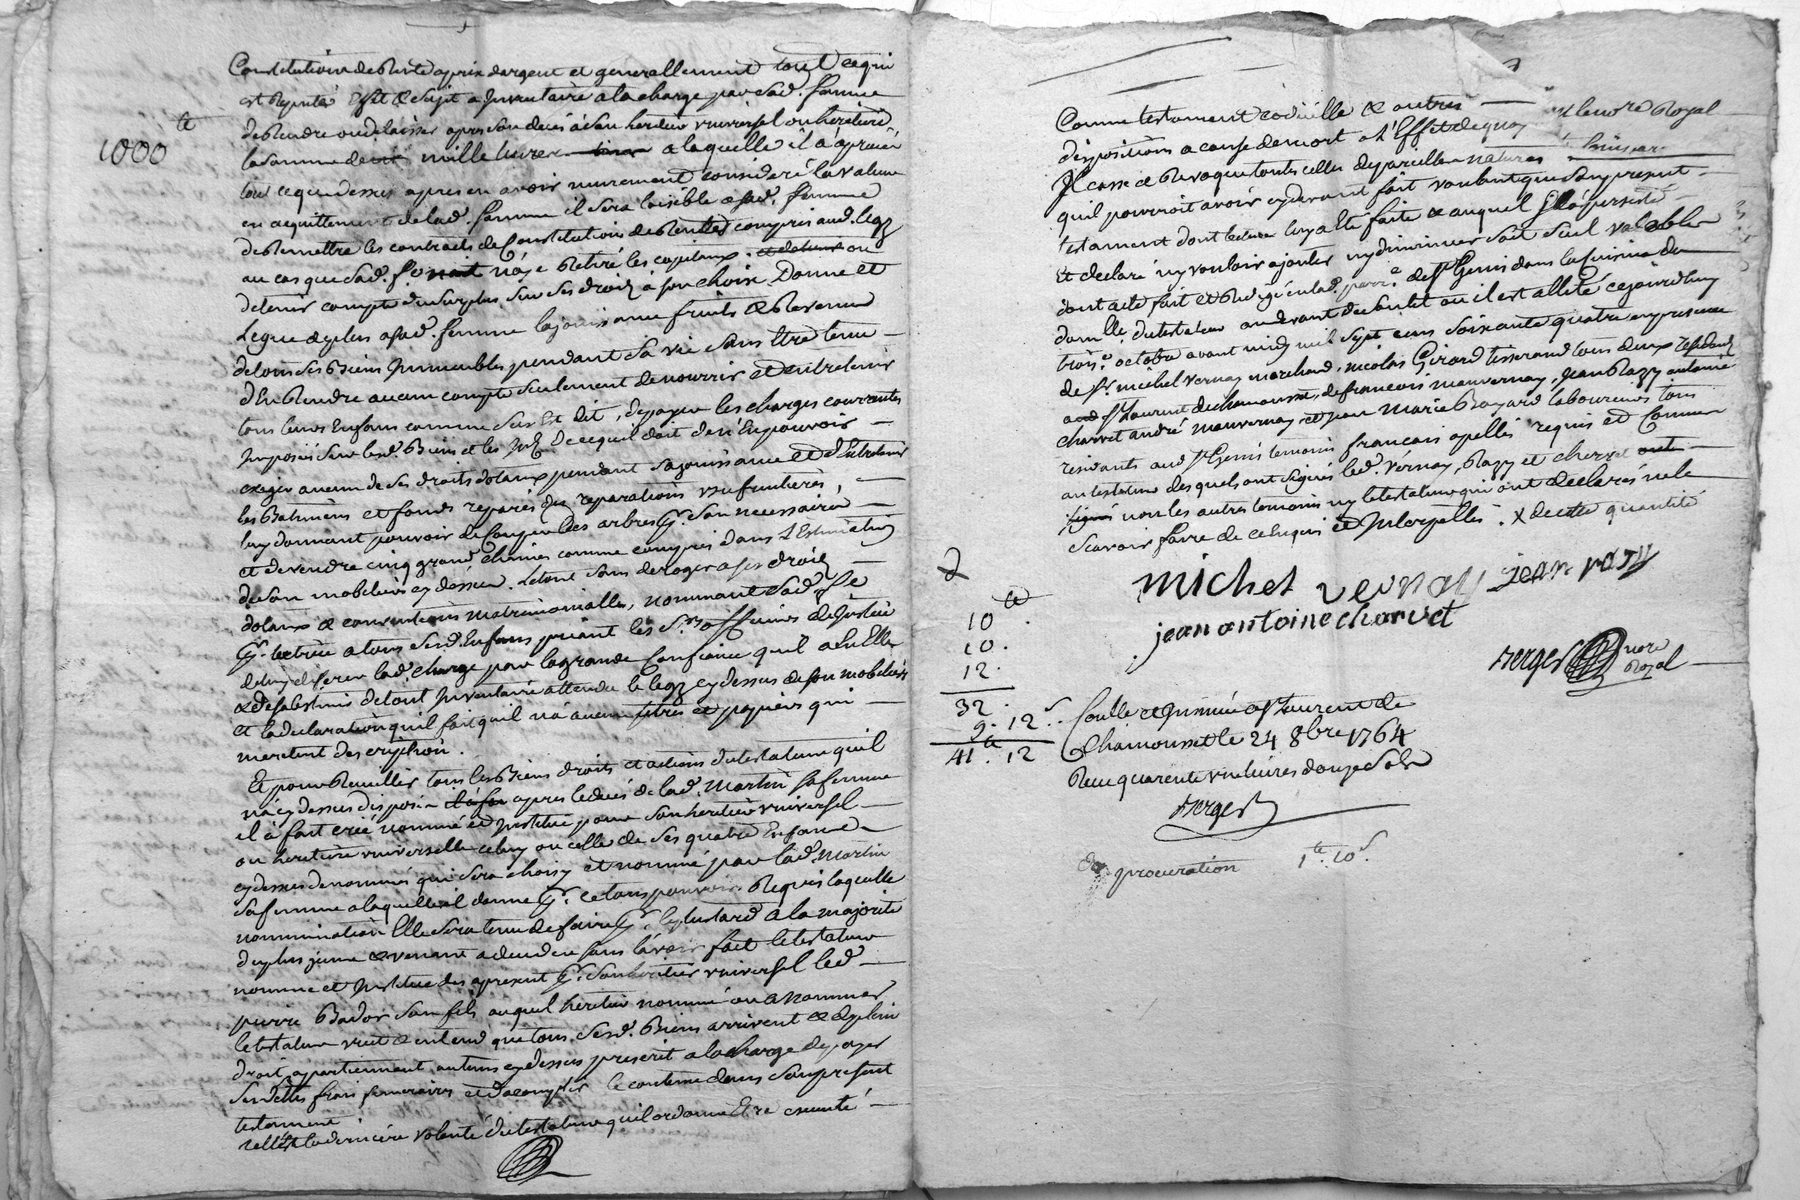 Constitution de Rente a prix dargent et generallement tout ce qui
est Reputé Effet & Sujet a Inventaire a la charge par sad. femme
de Rendre ou delaisser apres son deces à son heritier universel ou heritiere
1000
la somme de mille livres a laquelle il à aprecié
tout ce que dessus apres en avoir meurement consideré la valeur
en acquittement de lad. somme il sera loisible a sad. femme
de Remettre les contrats de Constitutions de Rentes compris aud. legz
au cas que sad. fe nait Retiré les capitaux ou
de tenir compte du surplus sur ses droits à son choix Donne et
Legue de plus a sad. femme la jouissance fruits & Revenus
de tous ses Biens Immeubles pendant sa vie sans Etre tenue
d'En Rendre aucun compte seulement de nourrir et entretenir
tous leurs Enfans comme sus Est dit, de payer les charges courrantes
Imposées sur lesd. Biens et les de ce quil doit de n'En pouvoir
exiger aucun de ses droits dotaux pendant sa jouissance et d'Entretenir
les Batimens et fonds reparés des reparations usufruitieres,
luy donnant pouvoir de couper les arbres pr. son necessaire
et de vendre cinq grand chaines comme compris dans l'Estimation
de son mobilier cy dessus. Le tout sans deroger a ses droits
dotaux & conventions matrimonialles, nommant sad. fe
pr. tutrice a tous sesd. Enfans priant les Srs officiers de Justice
de luy deferer lad. charge pour la grande Confiance quil a En Elle
& de sabstenir de tout Inventaire attendu le legz cy dessus de son mobilier
et la declaration quil fait quil n'a aucun titres et papiers qui
meritent description.
Et pour Recueillir tous les Biens droits et actions du testateur quil
n'a cy dessus disposé apres le deces de lad. Martin sa femme
il à fait créé nommé et Institué pour son heritier universel
ou heritiere universelle celuy ou celle de ses quatre Enfans
cy dessus denommés qui sera choisy et nommé par lad. Martin
sa femme a laquelle il donne pr. ce tous pouvoirs Requis laquelle
nommination Elle sera tenue de faire pr. le plus tard a la majorité
du plus jeune & venant a deceder sans l'avoir fait le testateur
nomme et Institue des a present pr. son heritier universel led.
pierre Bador son fils auquel heritier nommé ou a nommer
le testateur veut & entend que tous sesd. Biens arrivent & de plein
droit appartiennent au tems cy dessus prescrit a la charge de payer
ses dettes frais funeraires et dacomplir le contenu dans son present
testament
cest la derniere volonté du testateur quil ordonne Etre executé
Comme testament codicille & autres
dispositions a cause de mort a l'Effet de quoy
Il casse & Revoque toutes celles de pareilles natures
quil pourroit avoir cy devant fait voulant que son present
testament dont lecture luy a été faite & auquel il a persisté
et declaré n'y vouloir ajouter ny diminuer soit seul valable
dont acte fait et Redigé en lad. parre de St Genis dans la cuisine du
domlle. du testateur au devant de son lit ou il est allité cejourdhuy
troise octobre avant midy mil sept cens soixante quatre en presence
de Sr michel vernay marchand, nicolas Girard tisserand tous deux residants
aud St Laurent de chamousset, de francois mauvernay, jean Razy antoine
charvet andré mauvernay et jean Marie Bayard laboureurs tous
residants aud St Genis temoins francais apellés requis et connus
au testateur desquels ont signés led. vernay, Razy et charvet
non les autres temoins ny le testateur qui ont declarés ne le
scavoir faire de ce Enquis et Interpellés. x de cette quantité
michel vernay jean razy
jean antoine charvet
Berger nore
Royal
10
10.
12.
32.
9. 12s
41. 12
Conllé & Insinué a St Laurent de
Chamousset le 24 8bre 1764
Reçu quarente une livres douze sols
Berger
procuration 1. 10s